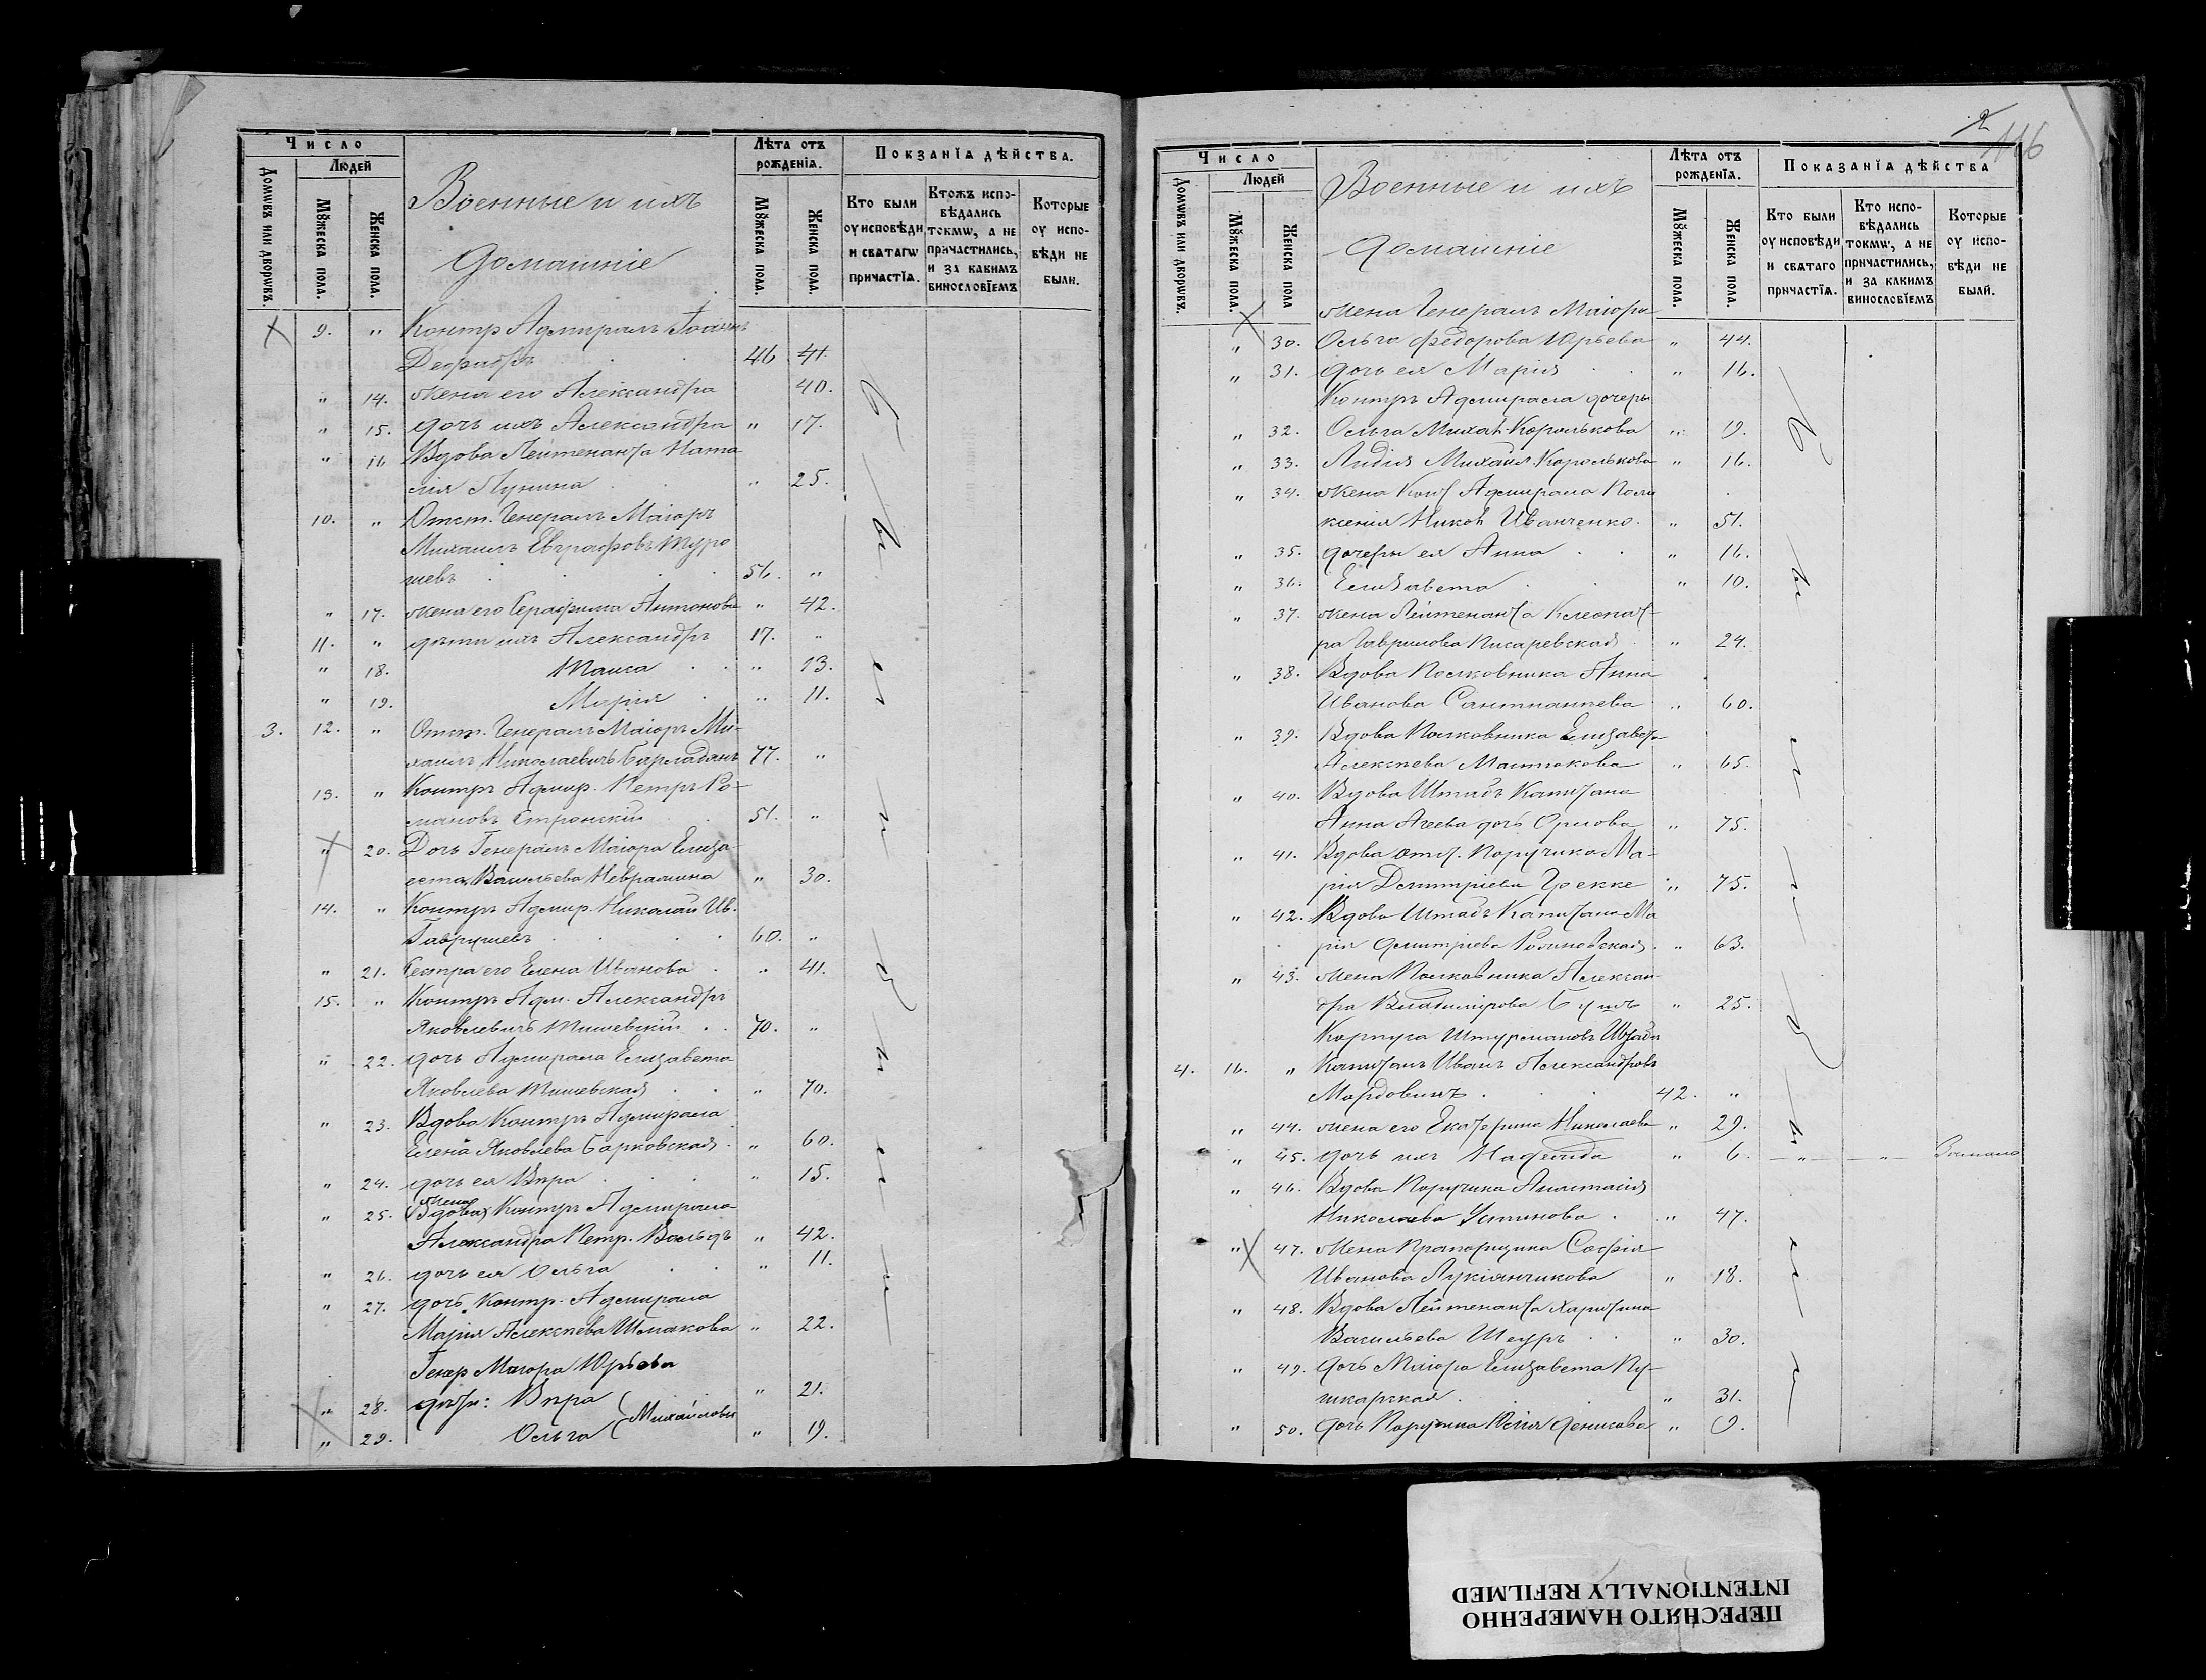 Число
Людей
Домѡвъ или дворѡвъ.
Мꙋжеска пола.
Женска пола.
Военные и ихъ
домашніе
Лѣта отъ
рожденїа.
Мꙋжеска пола.
Женска пола.
Покзанїа дѣйства.
Кто были
оу исповѣди
и сватагѡ
причастїа.
Ктожъ испо-
вѣдались
токмѡ, а не
причастились,
и за какимъ
винословїемъ
Которые
оу испо-
вѣди не
были.
9. " Контр Адмиралъ Іоаннъ
46 41
" 14. жена его Александра 40.
" 15. дочь ихъ Александра " 17.
" 16 Вдова Лейтенанта Ната
лія Лунина " 25.
10. " Отст. Генералъ Маіоръ
Михаилъ Евграфовъ Туро
шевъ 56. "
" 17. жена его Серафима Антонова " 42.
11. " дѣти ихъ Александръ 17. "
" 18. Таиса " 13.
" 19. Марія " 11.
3. 12. " Отст. Генералъ Маіоръ Ми-
хаилъ Николаевичъ 77. "
13. " Контръ Адмир. Петръ Ро-
мановъ Стронскій 51. "
" 20. Дочь Генералъ Маіора Елиза
Васильева " 30.
14. " Контръ Адмир. Николай Ив.
Гаврушевъ 60. "
" 21. Сестра его Елена Иванова " 41.
15. " Контръ Адм. Александръ
Яковлевичъ Тишевскій 70. "
" 22. дочь Адмирала Елизавета
Яковлева Тишевская " 70.
" 23. Вдова Контръ Адмирала
Елена Яковлева Барковская " 60.
" 24. дочь ея Вѣра " 15.
жена
" 25. (Вдова) Контръ Адмирала
Александра Петр. " 42.
" 26. дочь ея Ольга " 11.
" 27. дочь Контр. Адмирала
Марія Алексѣева Шмакова " 22.
Генер Маіора Юрьева
" 28. дѣти: Вѣра " 21.
Михайловы
" 29. Ольга " 9.
2
116
Число
Людей
Домѡвъ или дворѡвъ.
Мꙋжеска пола.
Женска пола
Военные и ихъ
домашніе
Лѣта отъ
рожденїа.
Мꙋжеска пола.
Женска пола.
Показанїа дѣйства
Кто были
оу исповѣди
и сватаго
причастїа.
Кто испо-
вѣдались
токмѡ, а не
причастились,
и за какимъ
винословїемъ
Которые
оу испо-
вѣди не
были.
жена Генералъ Маіора
" 30. Ольга Федорова Юрьева " 44.
" 31. дочь ея Марія " 16.
Контръ Адмирала дочери
" 32. Ольга Михай. Королькова " 19.
" 33. Лидія Михайл. Королькова " 16.
" 34. жена Конт Адмирала Поли
ксенія Никол Иванченко. " 51.
" 35. дочери ея Анна " 16.
" 36. Елизавета " 10.
" 37. жена Лейтенанта Клеопат-
ра Гаврилова Писаревская " 24.
" 38. Вдова Полковника Анна
Иванова " 60.
" 39. Вдова Полковника Елизавет
Алексѣева " 65.
" 40. Вдова Штабъ Капитана
Анна Агеева дочь Орлова " 75.
" 41. Вдова отст. Поручика Ма-
рія Дмитріева " 75.
" 42. Вдова Штабъ Капитана Ма
рія Дмитріева " 63.
" 43. жена Полковника Алексан-
дра Владимірова " 25.
Корпуса Штурмановъ Штабъ
4. 16. " Капитанъ Иванъ Александровъ
Мордовинъ 42. "
" 44. жена его Екатерина Николаева " 29.
" 45. дочь ихъ Надежда " 6. " "
" 46. Вдова Поручика Анастасія
Николаева Устинова " 47.
" 47. жена Прапорщика Софія
Иванова Лукіянчикова " 18.
" 48. Вдова Лейтенанта Харитина
Васильева " 30.
" 49. Дочь Маіора Елизавета Пу-
шкарская " 31.
" 50. дочь Поручика Юлія Денисова " 9.
ПЕРЕСНЯТО НАМЕРЕННО
INTENTIONALLY REFILMED